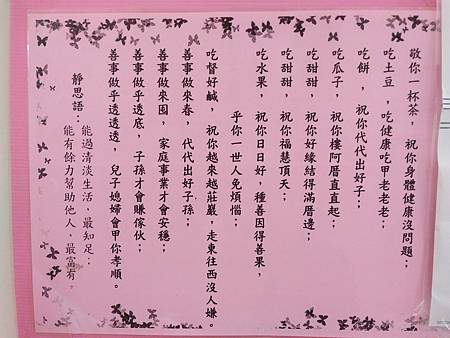 敬你一杯茶，祝你身體健康沒問題；
吃土豆，吃健康吃甲老老老；
吃餅，祝你代代出好子；
吃瓜子，祝你樓阿厝直直起；
吃甜甜，祝你好緣結得滿厝邊；
吃甜甜，祝你福慧頂天；
吃水果，祝你日日好，種善因得善果，
乎你一世人免煩惱；
吃督好鹹，祝你越來越莊嚴。走東往西沒人嫌。
善事做來春，代代出好子孫；
善事做來囤，家庭事業才會安穩；
善事做乎透底，子孫才會賺傢伙；
善事做乎透透透，兒子媳婦會甲你孝順。
靜思語：
能過清淡生活，最知足；
能有餘力幫助他人，最富有。